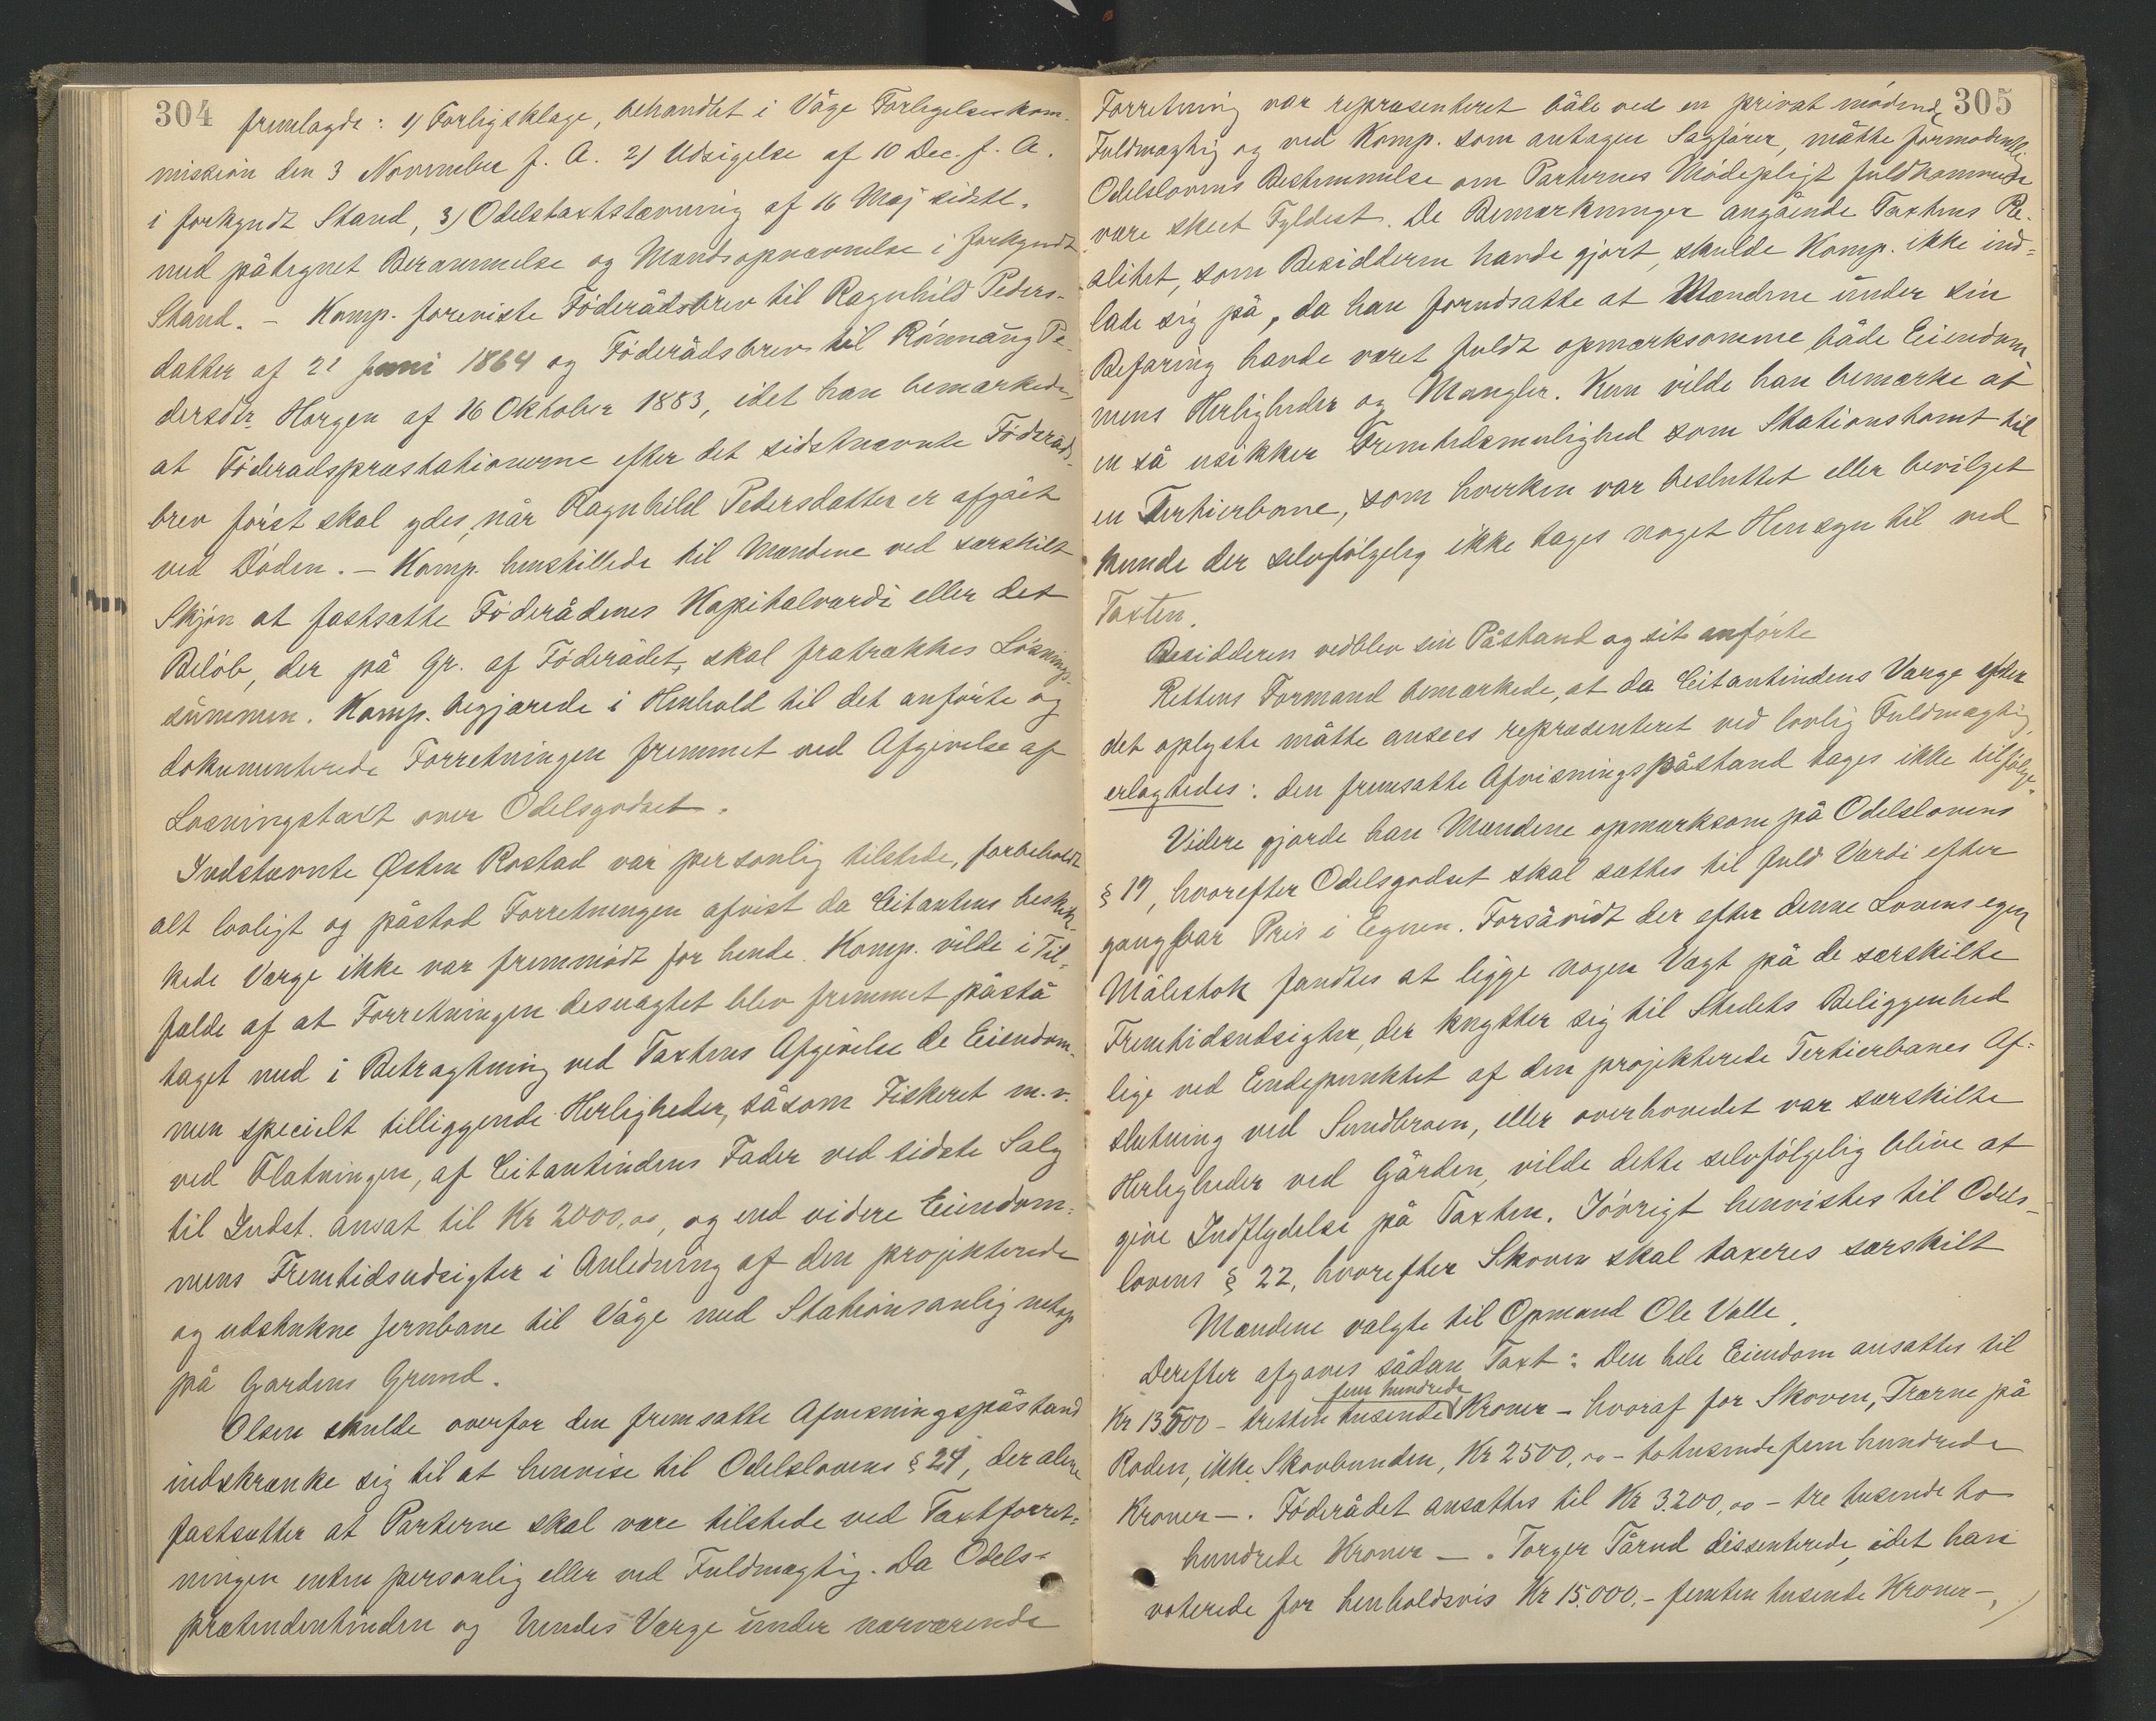 304
fremlagde: 1) Forligsklage, behandlet i Våge Forligelseskom-
mission den 3 November f. A. 2) Udsigelse af 10 Dec. f. A.
i forkyndt Stand, 3) Odelstaxtstævning af 16 Maj sidstl.
med påtegnet Berammelse og Mændsopnævnelse i forkyndt
Stand. – Komp. foreviste Föderådsbrev til Ragnhild Peders-
datter af 21 Juni 1864 og Föderådsbrev til Rönnaug Pe-
dersdr. Horgen af 16 Oktober 1883, idet han bemærkede,
at Föderadspræstationerne efter det sidstnævnte Föderåds-
brev först skal ydes, når Ragnhild Pedersdatter er afgået
ved Döden. – Komp. henstillede til Mændene ved særskilt
Skjön at fastsætte Föderådenes Kapitalværdi eller det
Belöb, der på Gr. af Föderådet, skal fratrækkes Lösnings-
summen. Komp. begjærede i Henhold til det anförte og
dokumenterede Forretningen fremmet ved Afgivelse af
Løsningstaxt over Odelsgodset.
Indstævnte Østen Rostad var personlig tilstede, forbeholdt
alt lovligt og påstod Forretningen afvist da Citantens beskik-
kede Værge ikke var fremmödt for hende. Komp. vilde i Til-
fælde af at Forretningen desuagtet blev fremmet påstå
taget med i Betragtning ved Taxtens Afgivelse de Eiendom-
men specielt tilliggende Herligheder, såsom Fiskeret m. v.
ved Flatningen, af Citantindens Fader ved sidste Salg
til Indst. ansat til Kr 2000,00, og end videre Eiendom-
mens Fremtidsudsigter i Anledning af den projekterede
og udstukne Jernbane til Våge med Stationsanlæg netop
på Gårdens Grund.
Olsen skulde overfor den fremsatte Afvisningspåstand
indskrænke sig til at henvise til Odelslovens § 24, der alene
fastsætter at Parterne skal være tilstede ved Taxtforret-
ningen enten personlig eller ved Fuldmægtig. Da Odels-
prætendentinden og hendes Værge under nærværende
305
Forretning var repræsenteret både ved en privat mödende
Fuldmægtig og ved Komp. som antagen Sagförer, måtte formodentlig
Odelslovens Bestemmelse om Parternes Mödepligt fuldkommen
være skeet Fyldest. De Bemærkninger angående Taxtens Re-
alitet, som Besidderen havde gjort, skulde Komp. ikke ind-
lade sig på, da han forudsatte at Mændene under sin
Befaring havde været fuldt opmærksomme både Eiendom-
mens Herligheder og Mangler. Kun vilde han bemærke at
en så usikker Fremtidsmulighed som Stationstomt til
en Tertierbane, som hverken var besluttet eller bevilget
kunde der selvfölgelig ikke tages noget Hensyn til ved
Taxten.
Besidderen vedblev sin Påstand og sit anförte
Rettens Formand bemærkede, at da Citantindens Værge efter
det oplyste måtte ansees repræsenteret ved lovlig Fuldmægtig,
eragtedes: den fremsatte Afvisningspåstand tages ikke tilfölge.
Videre gjorde han Mændene opmærksom på Odelslovens
§ 19, hvorefter Odelsgodset skal sættes til fuld Værdi efter
gangbar Pris i Egnen. Forsåvidt der efter denne Lovens egen
Målestok fandtes at ligge nogen Vægt på de særskilte
Fremtidsudsigter, der knytter sig til Stedets Beliggenhed
lige ved Endepunktet af den projekterede Tertierbanes Af-
slutning ved Sundbroen, eller overhovedet var særskilte
Herligheder ved Gården, vilde dette selvfölgelig blive at
give Indflydelse på Taxten. Iövrigt henvistes til Odels-
lovens § 22, hvorefter Skoven skal taxeres særskilt
Mændene valgte til Opmand Ole Valle.
Derefter afgaves sådan Taxt: Den hele Eiendom ansattes til
fem hundrede
Kr 13500 – tretten tusende Kroner – hvoraf for Skoven, Træerne på
Roden, ikke Skovbunden, Kr 2500,00 – totusende fem hundrede
Kroner –. Föderådet ansattes til Kr 3.200,00 – tre tusende to
hundrede Kroner –. Torger Tårud dissenterede, idet han
voterede for henholdsvis Kr 15.000. – femten tusende Kroner –,